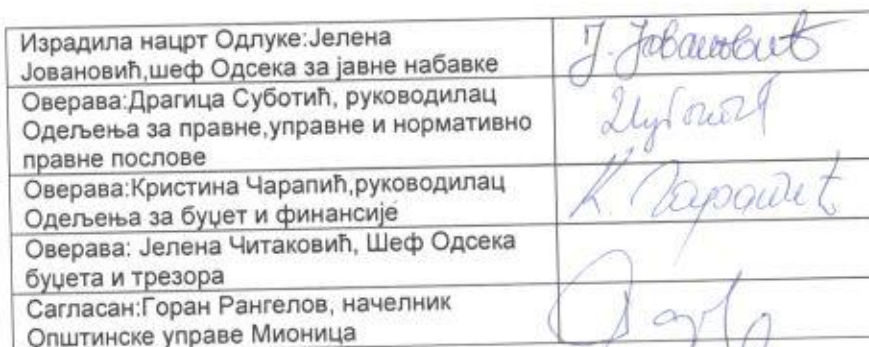 Израдила нацрт Одлуке:Јелена
Јовановић,шеф Одсека за јавне набавке
Ј. Јовановић
Оверава:Драгица Суботић, руководилац
Одељења за правне,управне и нормативно
правне послове
Оверава:Кристина Чарапић,руководилац
Одељења за буџет и финансије
К. Чарапић
Оверава: Јелена Читаковић, Шеф Одсека
буџета и трезора
Сагласан:Горан Рангелов, начелник
Општинске управе Мионица